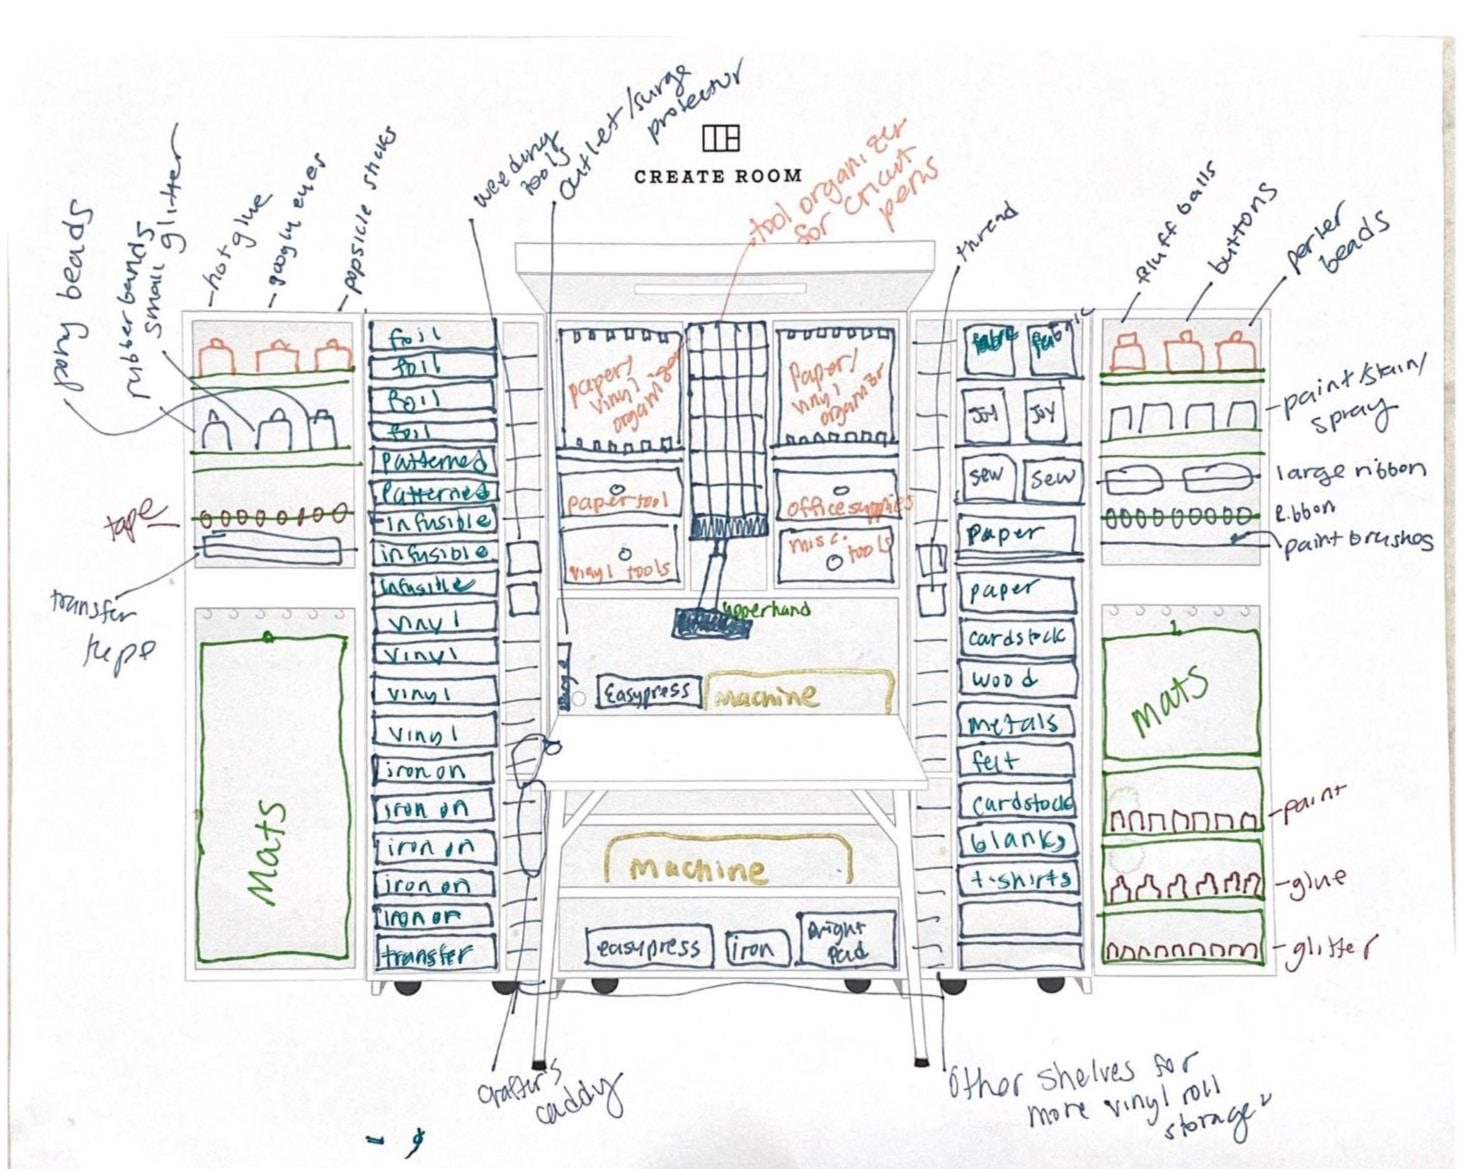 pony beads
rubber bands
small glitter
hot glue
googly eyes
popsicle sticks
weeding
tools
outlet/surge
protector
CREATE ROOM
tool organizer
for cricut
pens
thread
fluff balls
buttons
perler
beads
paint/stain/
spray
large ribbon
Ribbon
paint brushes
tape
transfer
tape
foil
foil
foil
foil
Patterned
Patterned
infusible
infusible
infusible
vinyl
vinyl
vinyl
vinyl
iron on
iron on
iron on
iron on
iron on
transfer
paper/
vinyl
organizer
Paper/
vinyl
organizer
paper tool
vinyl tools
office supplies
misc.
tools
upperhand
Easypress
Machine
Machine
easypress
iron
Bright
Pad
fabric
fabric
Joy
Joy
sew
Sew
Paper
paper
cardstock
wood
metals
felt
cardstock
blanks
t-shirts
Mats
Mats
paint
glue
glitter
crafter's
caddy
Other shelves for
more vinyl roll
storage